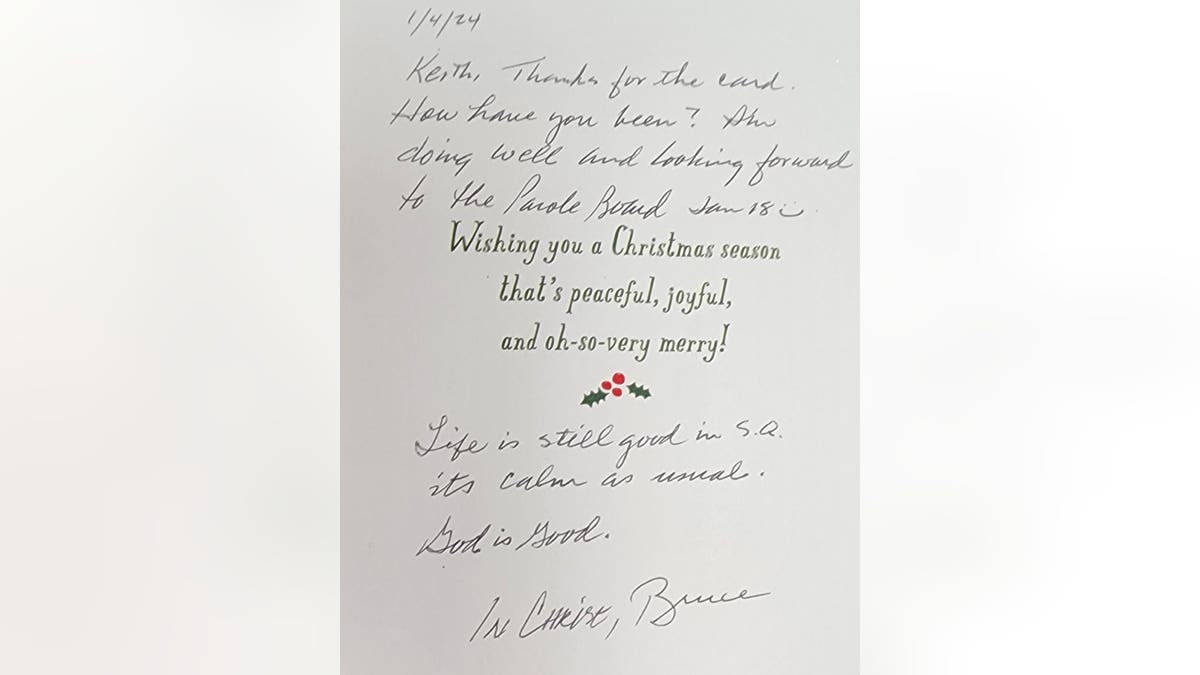 1/4/24
Keith, Thanks for the card.
How have you been? Am
doing well and looking forward
to the Parole Board Jan 18
Wishing you a Christmas season
that's peaceful, joyful,
and oh-so-very merry!
Life is still good in S.Q.
its calm as usual.
God is Good.
In Christ, Bruce